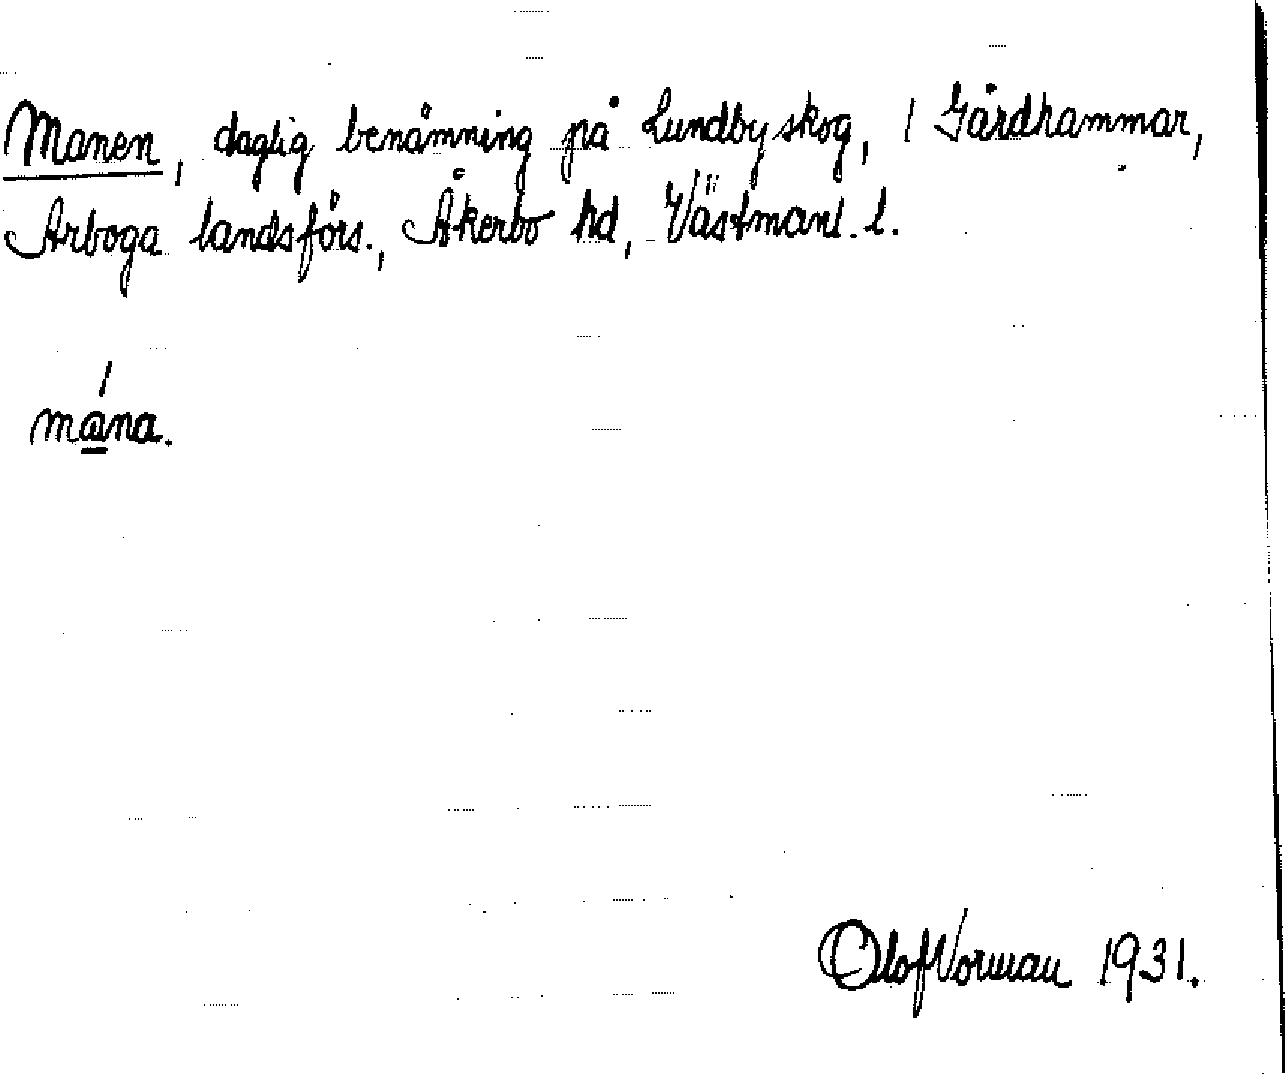 Manen, daglig benämning på Lundbyskog, i Gärdhammar,
Arboga landsförs., Åkerbo hd, Västmanl. l.
mána.
Olof Norman 1931.